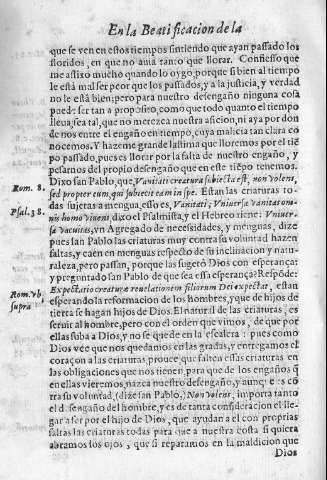 En la Beatificacion de la
que se ven en estos tiempos sintiendo que ayan passado los
floridos, en que no auia tanto que llorar. Confiesso que
me aflixo mucho quando lo oygo, porque si bien al tiempo
le està mal ser peor que los passados, y a la justicia, y verdad
no le està bien; pero para nuestro desengaño ninguna cosa
pued: ser tan a proposito, como que todo quanto el tiempo
lleua sea tal, que no merezca nuestra aficion, ni aya por don
de nos entre el engaño en tiempo, cuya malicia tan clara co
nocemos. Y hazeme grande lastima que lloremos por el tiẽ
po passado, pues es llorar por la falta de nuestro engaño, y
pesarnos del propio desengaño que en este tiẽpo tenemos.
Rom. 8. Dixo san Pablo, que, Vanitati creatura subiecta est, non volens,
sed propter eum, qui subiecit eam in spe. Estan las criaturas to
das sujetas a mengua, esso es, Vanitati; Vniuersa vanitas om-
Psal. 38. nis homo viuens dixo el Psalmista, y el Hebreo tiene: Vniuer-
sa vacuitas, vn Agregado de necessidades, y menguas, dize
pues san Pablo las criaturas muy contra su voluntad hazen
faltas, y caen en menguas respecto de su inclinacion y natu-
raleza, pero passan, porque las sugetò Dios con esperança:
y preguntado san Pablo de que es essa esperança? Respõde:
Rom. vb. supra Expectatio creaturæ reuelationem filiorum Dei expectat, estan
esperando la reformacion de los hombres, y que de hijos de
tierra se hagan hijos de Dios. El natural de las criaturas, es
seruir al hombre, pero con el orden que vimos, de que por
ellas suba a Dios, y no se quede en la escalera: pues como
Dios vee que nos quedamos en las gradas, y entregamos el
coraçon a las criaturas, prouee que falten essas criaturas en
las obligaciones que nos tienen, para que de los engaños q̃
en ellas vieremos, nazca nuestro desengaño, y aunq̃ es cõ
tra su voluntad, (dize san Pablo,) Non volens, importa tanto
el d. sengaño del hombre, y es de tanta consideracion el lle-
gar a ser por el hijo de Dios, que ayudan a el con proprias
faltas las criaturas todas para que a nuestra costa si quiera
abramos los ojos, que si reparamos en la maldicion que
Dios